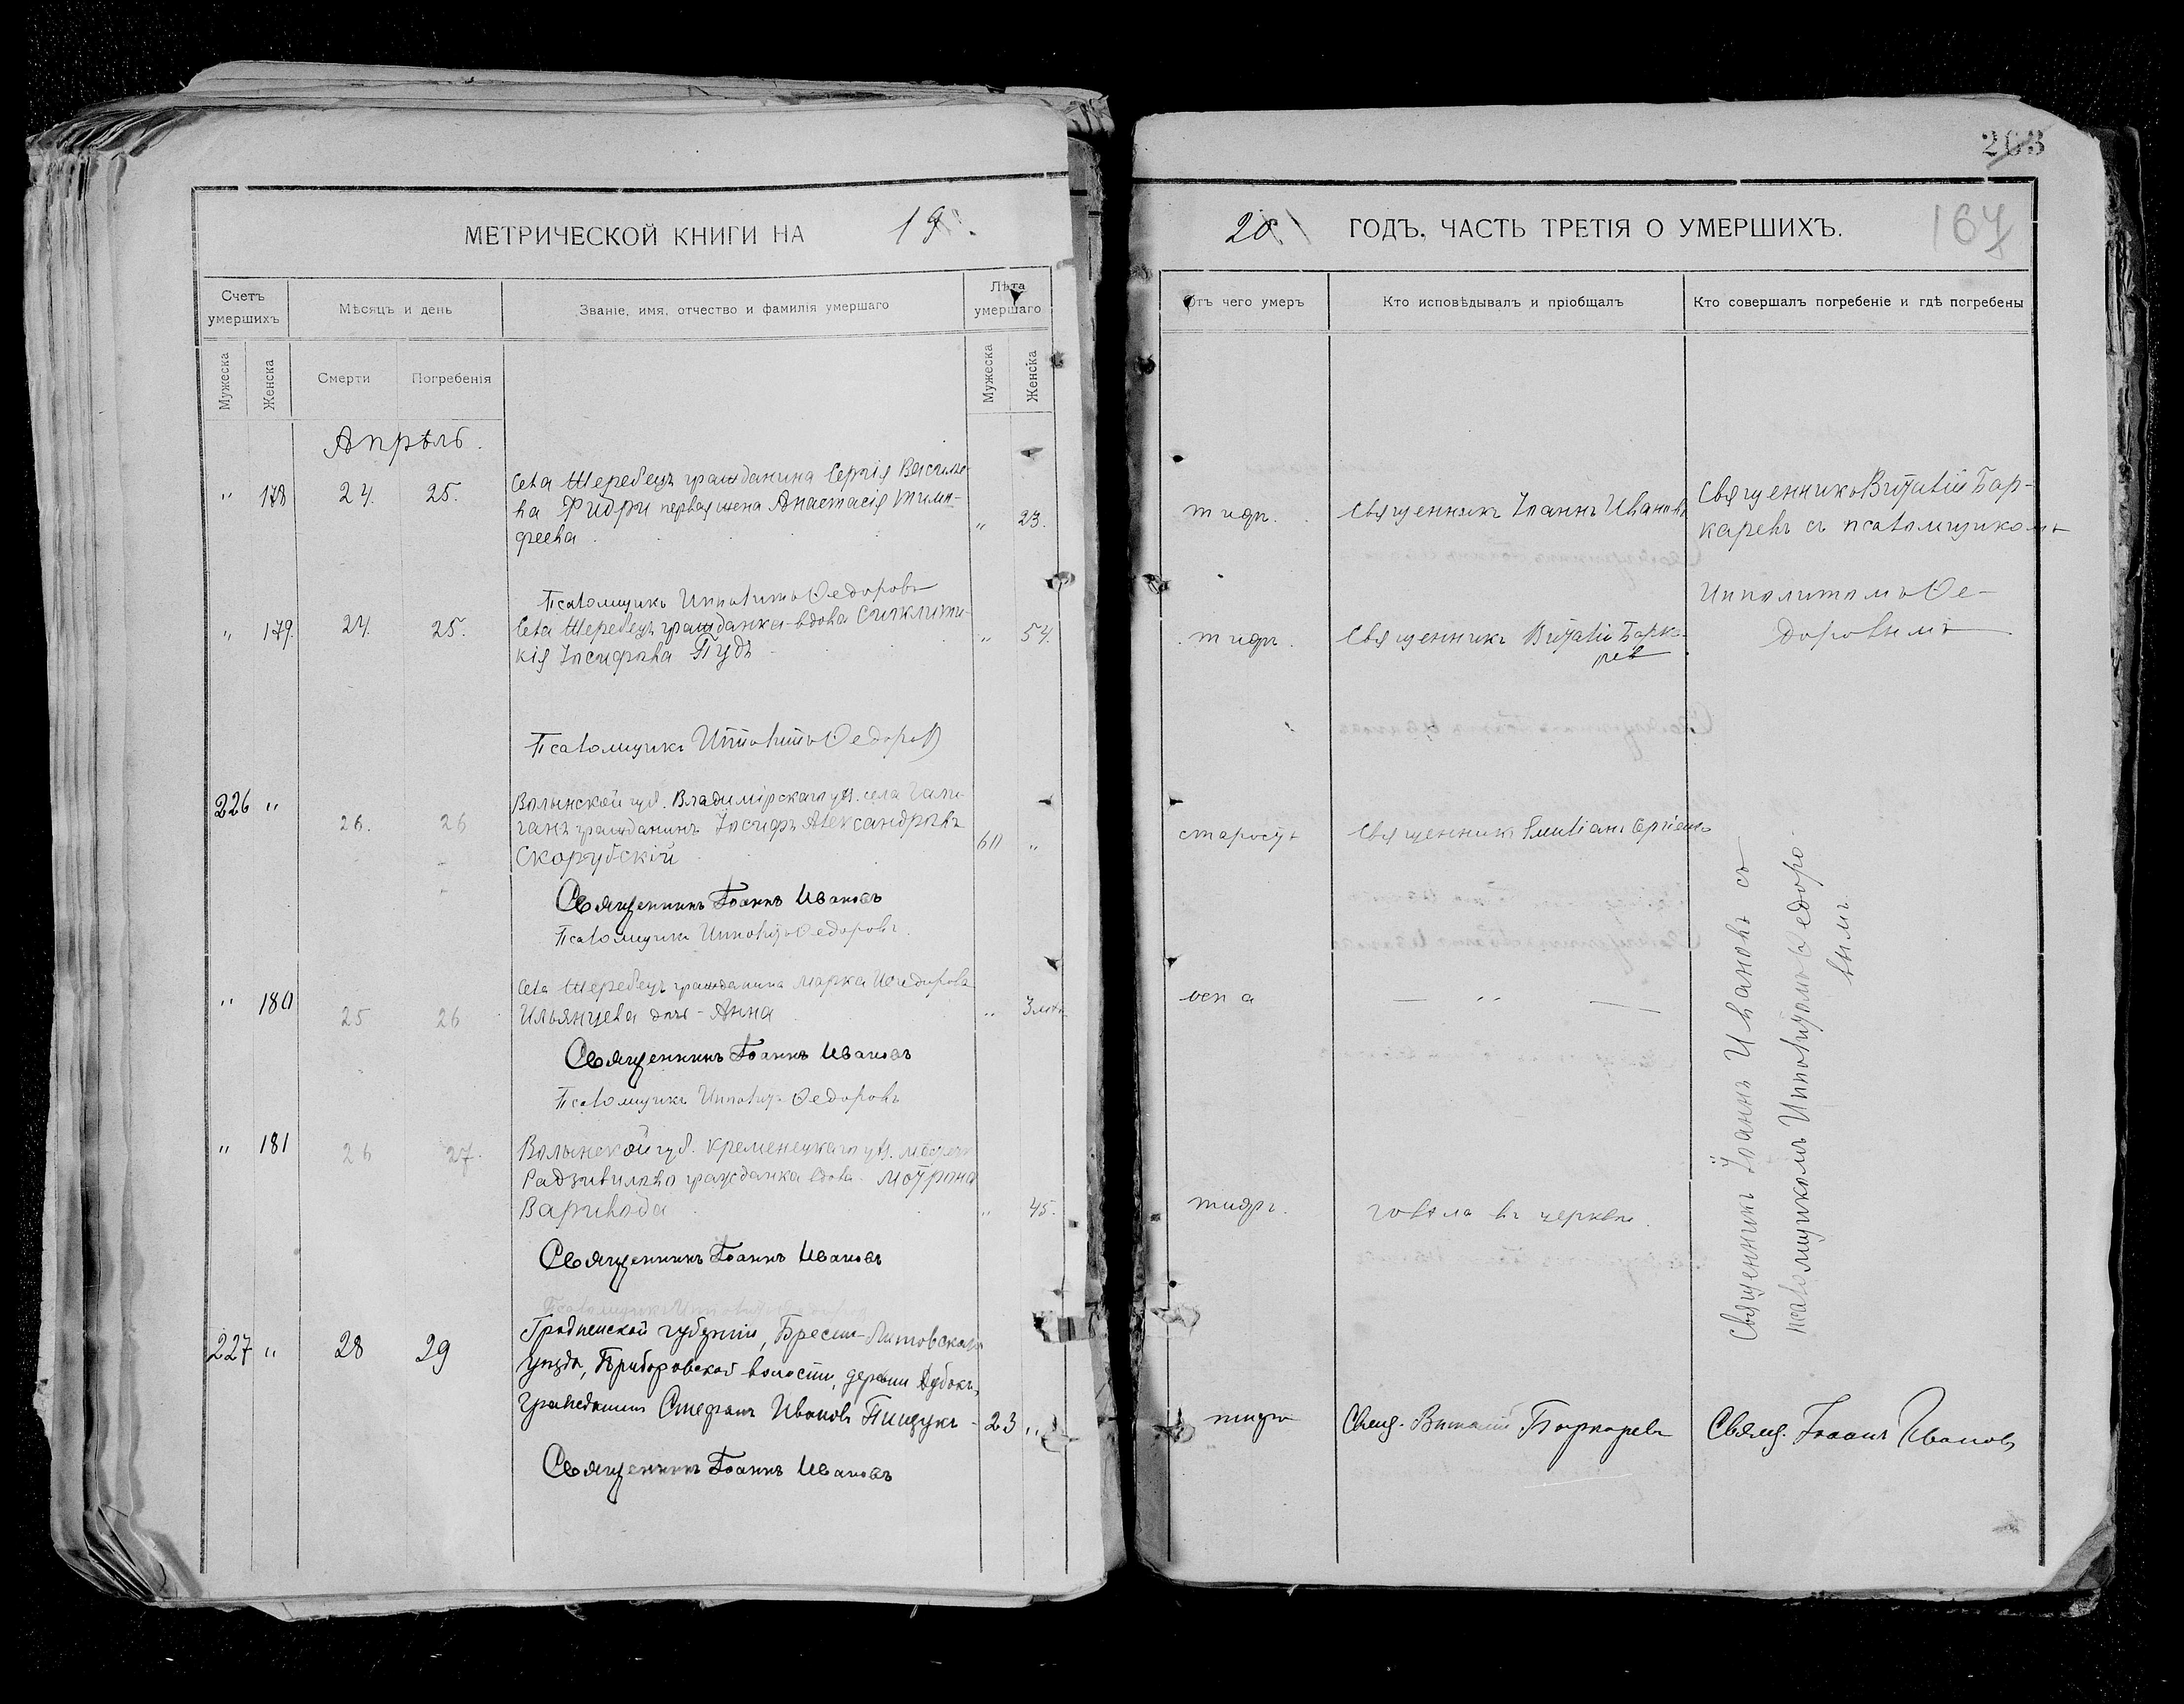 203
167
МЕТРИЧЕСКОЙ КНИГИ НА 19
20 ГОДЪ, ЧАСТЬ ТРЕТІЯ О УМЕРШИХЪ.
Счетъ умершихъ
Мужеска
Женска
Мѣсяцъ и день
Смерти
Погребенія
Званіе, имя, отчество и фамилія умершаго
Лѣта умершаго
Мужеска
Женска
Отъ чего умеръ
Кто исповѣдывалъ и пріобщалъ
Кто совершалъ погребеніе и гдѣ погребены
Апрѣль.
" 178 24. 25.
Села Жеребецъ гражданина Сергія Василье-
ва Фидри первая жена Анастасія Тимо-
феева
" 23.
тифъ.
Священникъ Іоаннъ Ивановъ
Священникъ Виталій Бар-
каревъ съ псаломщикомъ
Ипполитомъ Ѳе-
доровымъ
Псаломщикъ Ипполитъ Ѳедоровъ
" 179. 24. 25.
Села Жеребецъ гражданка-вдова Синклити-
кія Іосифова Пудъ
" 54.
тифъ.
Священникъ Виталій Барка-
ревъ
Псаломщикъ Ипполитъ Ѳедоровъ
226 " 26. 26
Волынской губ. Владимірскаго уѣз. села
гражданинъ Іосифъ Александровъ
Скорубскій
60 "
старость
Священникъ Емиліанъ
Священникъ Іоаннъ Ивановъ
Псаломщикъ Ипполитъ Ѳедоровъ.
" 180 25 26
Села Жеребецъ гражданина Марка Исидорова
Ильянцева дочь - Анна
" 3
оспа
— " —
Священникъ Іоаннъ Ивановъ
Псаломщикъ Ипполитъ Ѳедоровъ
Священникъ Іоаннъ Ивановъ съ
псаломщикомъ Ипполитомъ Ѳедоро-
вымъ
" 181 26 27.
Волынской губ. Кременецкаго уѣз. мѣстеч.
Радзивилово гражданка вдова Мотрона
Варивода
" 45.
тифъ.
говѣла въ церкви.
Священникъ Іоаннъ Ивановъ
Псаломщикъ Ипполитъ Ѳедоровъ
227 " 28 29
Гродненской губерніи, Брест-Литовскаго
уѣзда, волости, деревни Дубокъ,
гражданинъ Стефанъ Ивановъ Пищукъ
23 "
тифъ
Свящ. Виталій Баркаревъ
Свящ. Іоаннъ Ивановъ
Священникъ Іоаннъ Ивановъ